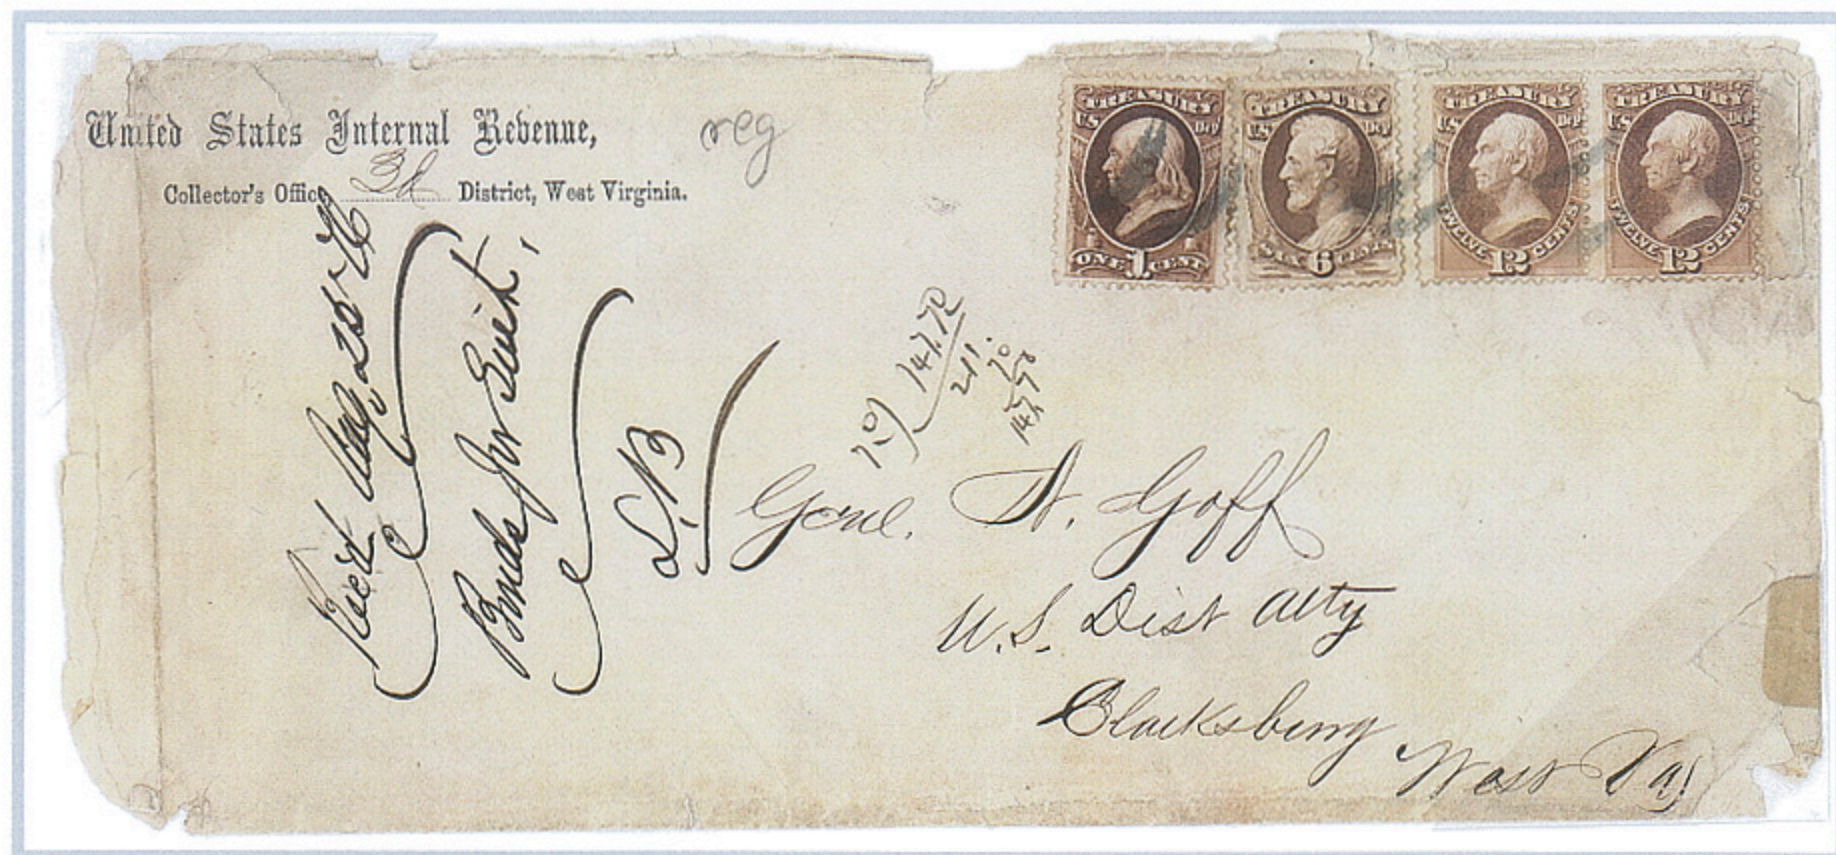 United States Internal Revenue,
Collector's Office, 3d District, West Virginia.
reg
TREASURY
U.S. Dep.
ONE 1 CENT
TREASURY
U.S. Dep.
SIX 6 CENTS
TREASURY
U.S. Dep.
TWELVE 12 CENTS
TREASURY
U.S. Dep.
TWELVE 12 CENTS
Aug 25
Bonds
147.70
211.
70
Genl. N. Goff
U.S. Dist Atty
Clacksburg
West Va